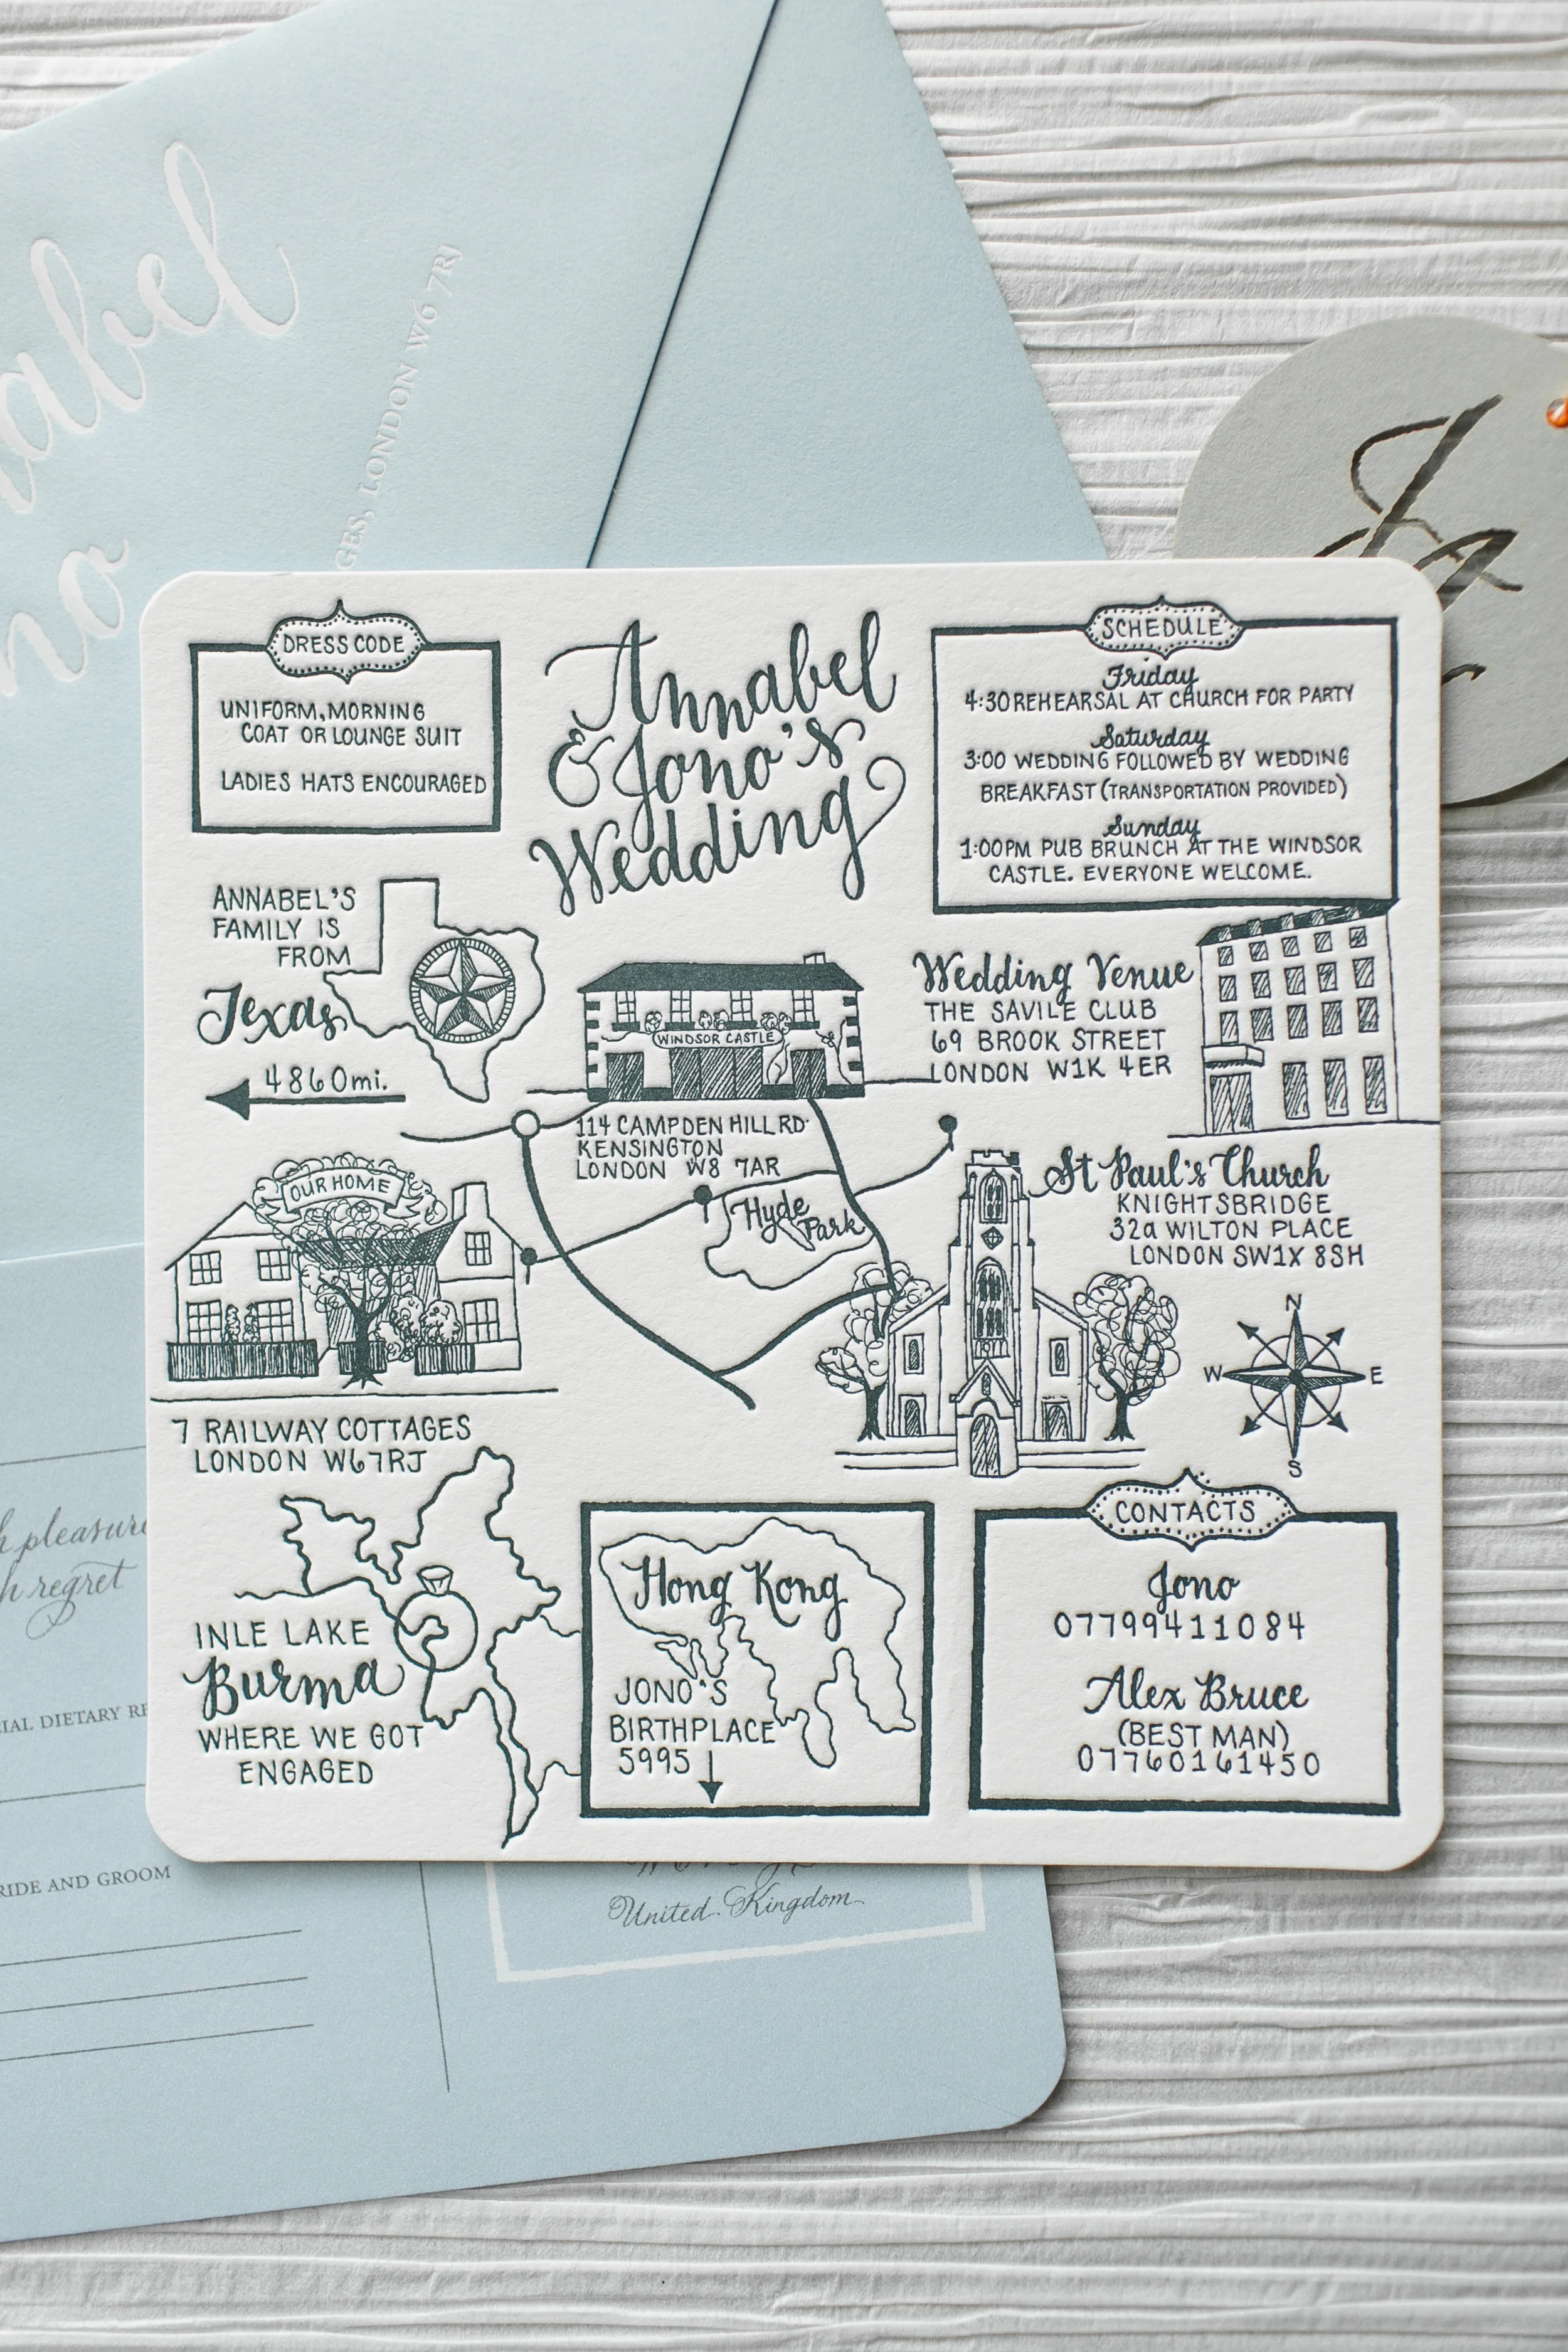 abel
no
GES, LONDON W6 7RJ
DRESS CODE
UNIFORM, MORNING
COAT OR LOUNGE SUIT
LADIES HATS ENCOURAGED
Annabel
& Jono's
Wedding
SCHEDULE
Friday
4:30 REHEARSAL AT CHURCH FOR PARTY
Saturday
3:00 WEDDING FOLLOWED BY WEDDING
BREAKFAST (TRANSPORTATION PROVIDED)
Sunday
1:00PM PUB BRUNCH AT THE WINDSOR
CASTLE. EVERYONE WELCOME.
ANNABEL'S
FAMILY IS
FROM
Texas
4860mi.
WINDSOR CASTLE
114 CAMPDEN HILL RD.
KENSINGTON
LONDON W8 7AR
Wedding Venue
THE SAVILE CLUB
69 BROOK STREET
LONDON W1K 4ER
OUR HOME
7 RAILWAY COTTAGES
LONDON W67RJ
Hyde
Park
St Paul's Church
KNIGHTSBRIDGE
32a WILTON PLACE
LONDON SW1X 8SH
N
W E
S
INLE LAKE
Burma
WHERE WE GOT
ENGAGED
Hong Kong
JONO'S
BIRTHPLACE
5995
CONTACTS
Jono
07799411084
Alex Bruce
(BEST MAN)
07760161450
h pleasure
h regret
IAL DIETARY RE
RIDE AND GROOM
United Kingdom